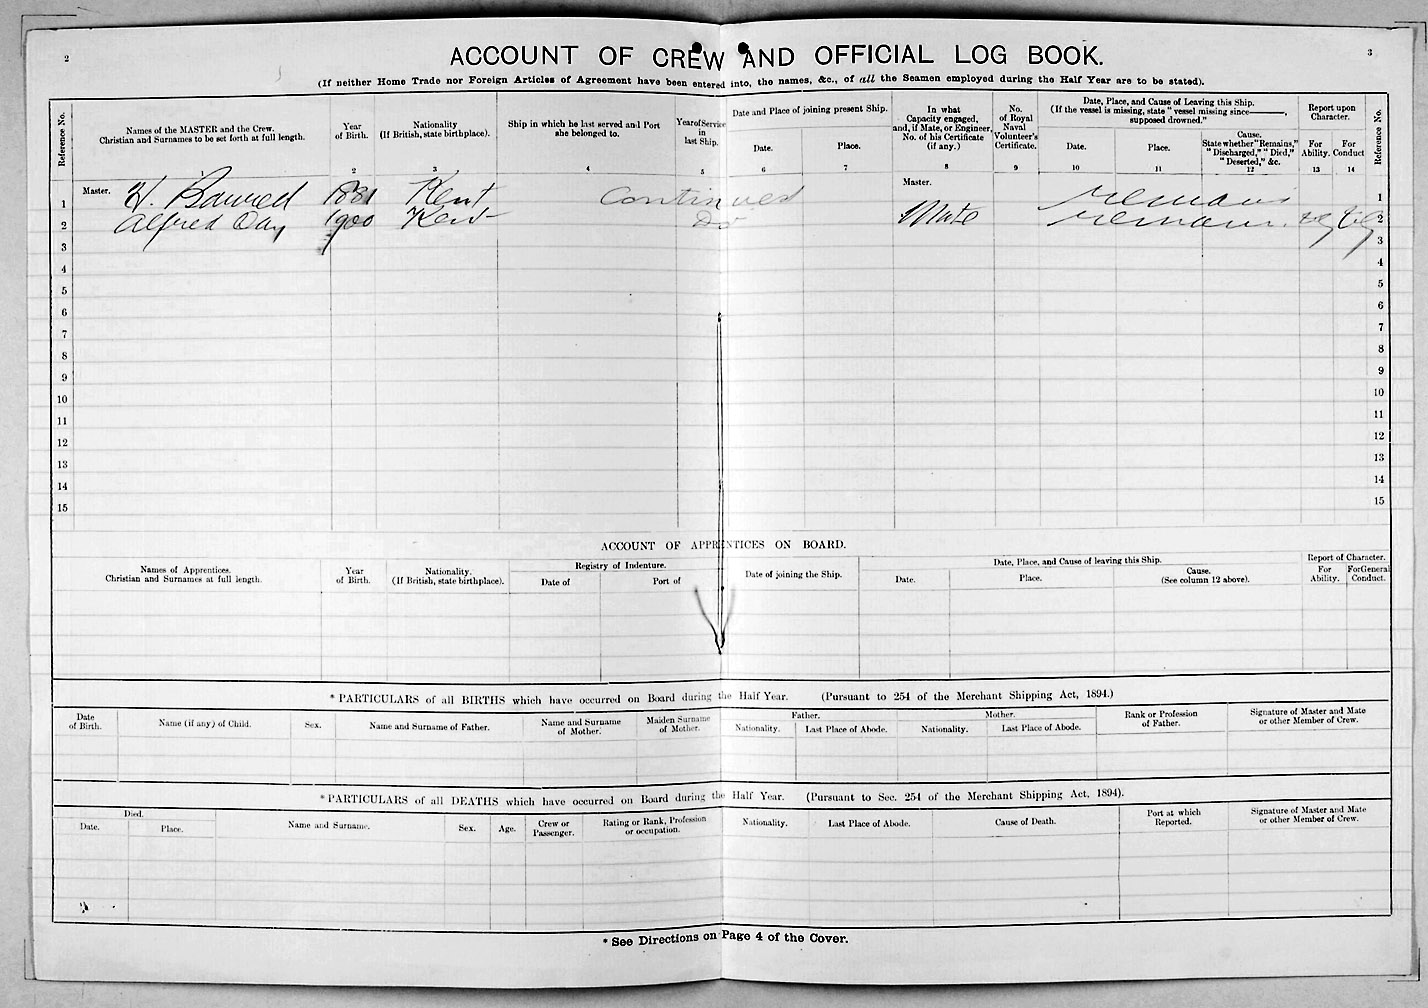 2
ACCOUNT OF CREW AND OFFICIAL LOG BOOK.
3
(If neither Home Trade nor Foreign Articles of Agreement have been entered into, the names, &c., of all the Seamen employed during the Half Year are to be stated).
Reference No.
Names of the MASTER and the Crew.
Christian and Surnames to be set forth at full length.
Year
of Birth.
2
Nationality
(If British, state birthplace).
3
Ship in which he last served and Port
she belonged to.
4
Year of Service
in
last Ship.
5
Date and Place of joining present Ship.
Date.
6
Place.
7
In what
Capacity engaged,
and, if Mate, or Engineer,
No. of his Certificate
(if any.)
8
No.
of Royal
Naval
Volunteer's
Certificate.
9
Date, Place, and Cause of Leaving this Ship.
(If the vessel is missing, state "vessel missing since———,
supposed drowned."
Date.
10
Place.
11
Cause.
State whether "Remains,"
"Discharged," "Died,"
"Deserted," &c.
12
Report upon
Character.
For
Ability.
13
For
Conduct
14
Reference No.
1 Master. H. 1881 Kent Continued Master. Remains 1
2 Alfred Day 1900 Kent Do Mate Remains VG VG 2
3 3
4 4
5 5
6 6
7 7
8 8
9 9
10 10
11 11
12 12
13 13
14 14
15 15
ACCOUNT OF APPRENTICES ON BOARD.
Names of Apprentices.
Christian and Surnames at full length.
Year
of Birth.
Nationality.
(If British, state birthplace).
Registry of Indenture.
Date of
Port of
Date of joining the Ship.
Date, Place, and Cause of leaving this Ship.
Date.
Place.
Cause.
(See column 12 above).
Report of Character.
For
Ability.
For General
Conduct.
* PARTICULARS of all BIRTHS which have occurred on Board during the Half Year. (Pursuant to 254 of the Merchant Shipping Act, 1894.)
Date
of Birth.
Name (if any) of Child.
Sex.
Name and Surname of Father.
Name and Surname
of Mother.
Maiden Surname
of Mother.
Father.
Nationality.
Last Place of Abode.
Mother.
Nationality.
Last Place of Abode.
Rank or Profession
of Father.
Signature of Master and Mate
or other Member of Crew.
* PARTICULARS of all DEATHS which have occurred on Board during the Half Year. (Pursuant to Sec. 254 of the Merchant Shipping Act, 1894).
Died.
Date.
Place.
Name and Surname.
Sex.
Age.
Crew or
Passenger.
Rating or Rank, Profession
or occupation.
Nationality.
Last Place of Abode.
Cause of Death.
Port at which
Reported.
Signature of Master and Mate
or other Member of Crew.
* See Directions on Page 4 of the Cover.